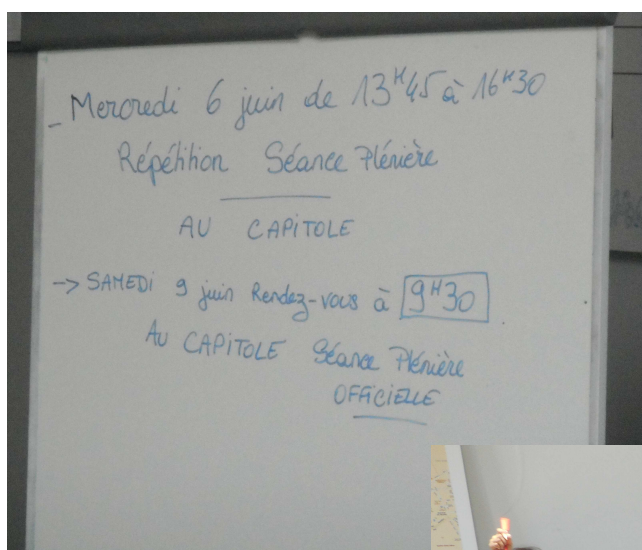 _ Mercredi 6 juin de 13H45 à 16H30
Répétition Séance Plénière
AU CAPITOLE
-> SAMEDI 9 juin Rendez-vous à 9H30
AU CAPITOLE Séance Plénière
OFFICIELLE